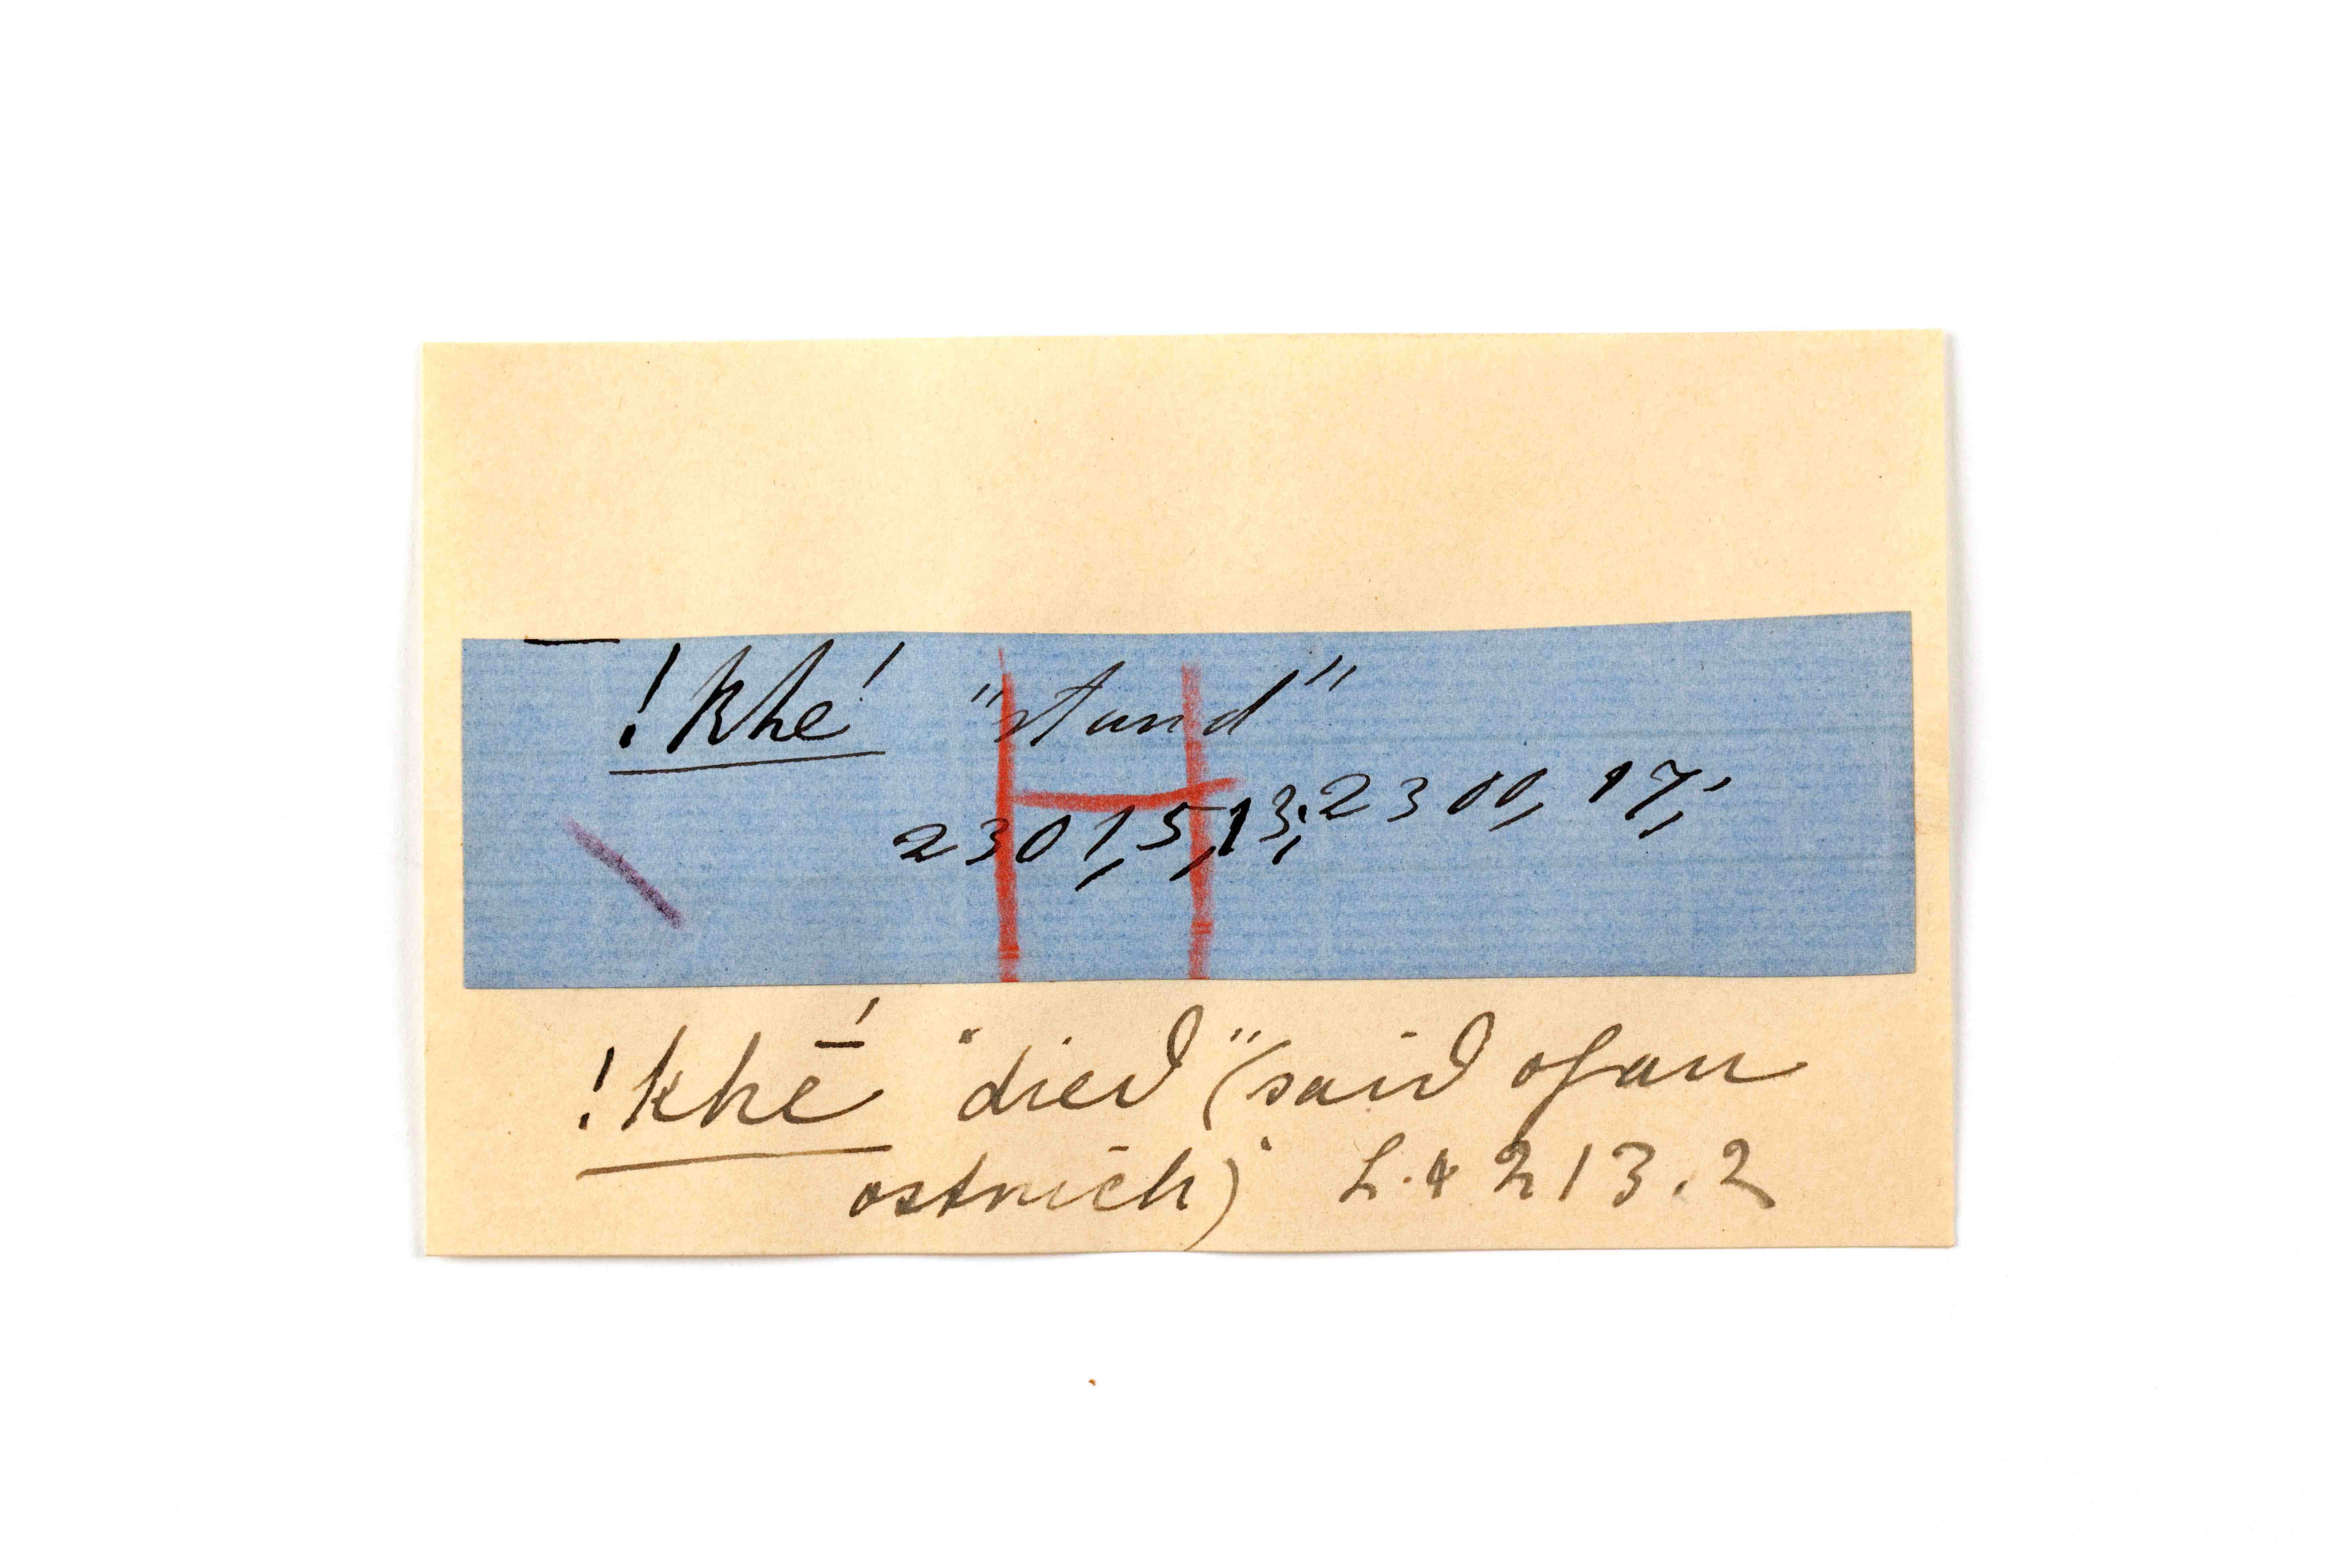 !khé "stand"
H
2301,5,13; 2300, 17;
!khḗ "died" (said of an
ostrich) L. 4 213.2